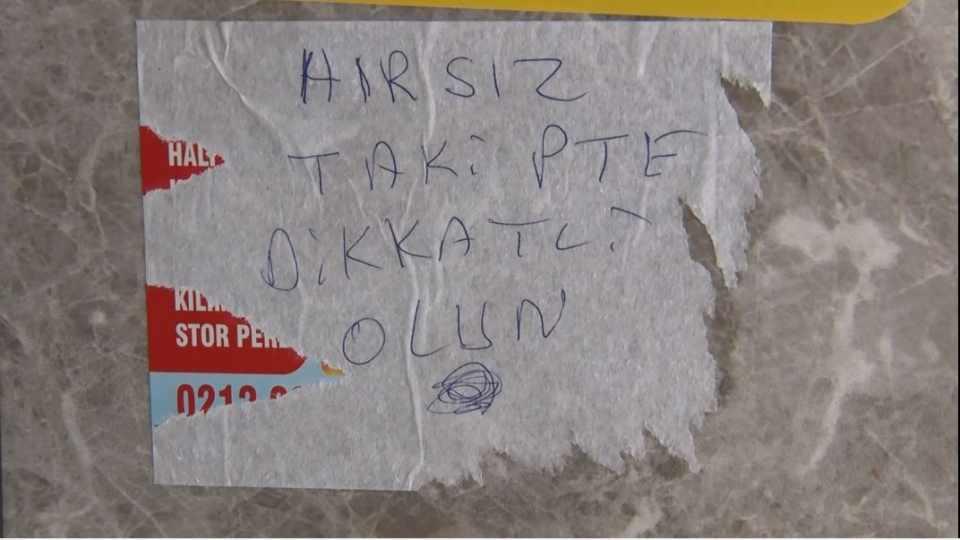 HIRSIZ
TAKİPTE
DİKKATLİ
OLUN
HALI
STOR PER
0212